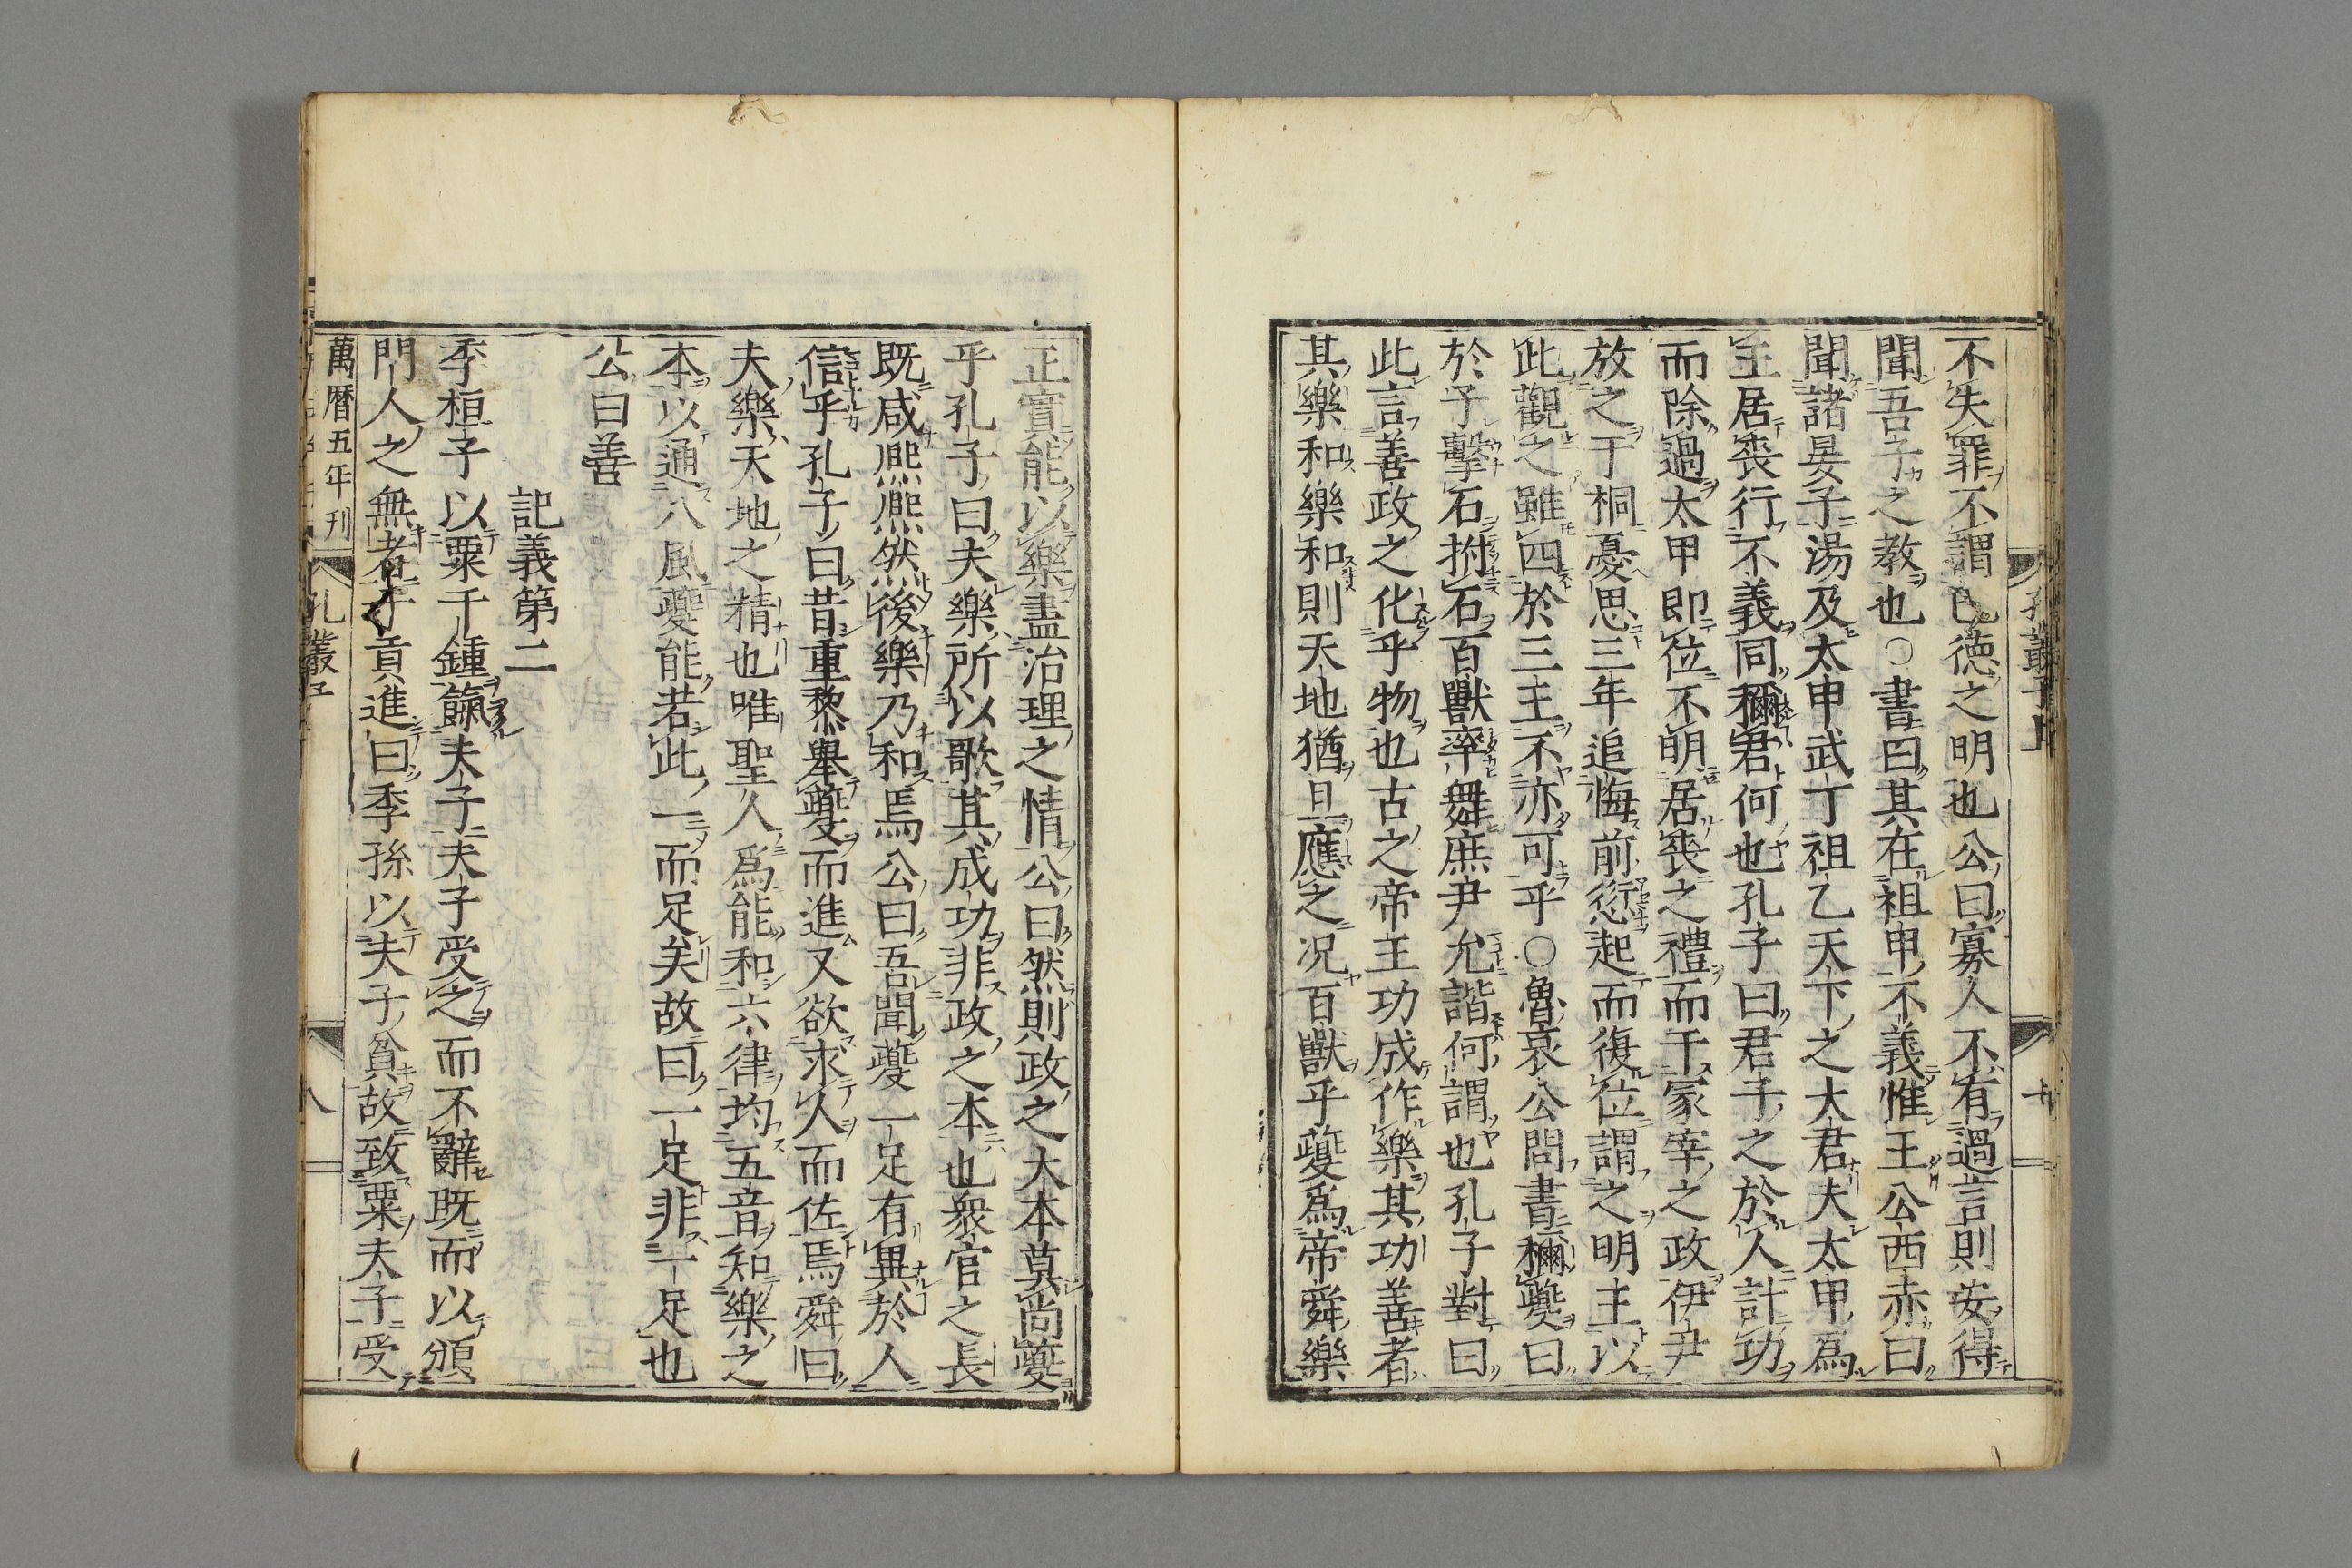 不失罪不謂己徳之明也公曰寡人不有過言則安得
聞吾子之教也○書曰其在祖甲不義惟王公西赤曰
聞諸晏子湯及太甲武丁祖乙天下之大君夫太甲爲
王居喪行不義同稱君何也孔子曰君子之於人計功
而除過太甲即位不明居喪之禮而干冢宰之政伊尹
放之于桐憂思三年追悔前愆起而復位謂之明王以
此觀之雖四於三王不亦可乎○魯哀公問書稱夔曰
於予擊石拊石百獸率舞庶尹允諧何謂也孔子對曰
此言善政之化乎物也古之帝王功成作樂其功善者
其樂和樂和則天地猶且應之况百獸乎夔爲帝舜樂
孔叢子上
七
正實能以樂盡治理之情公曰然則政之大本莫尚夔
乎孔子曰夫樂所以歌其成功非政之本也衆官之長
既咸熈熈然後樂乃和焉公曰吾聞夔一足有異於人
信乎孔子曰昔重黎舉夔而進又欲求人而佐焉舜曰
夫樂天地之精也唯聖人爲能和六律均五音知樂之
本以通八風夔能若此一而足矣故曰一足非一足也
公曰善
記義第二
季桓子以粟千鍾餼夫子夫子受之而不辭既而以頒
門人之無者子貢進曰季孫以夫子貧故致粟夫子受
萬暦五年刊
孔叢子
八